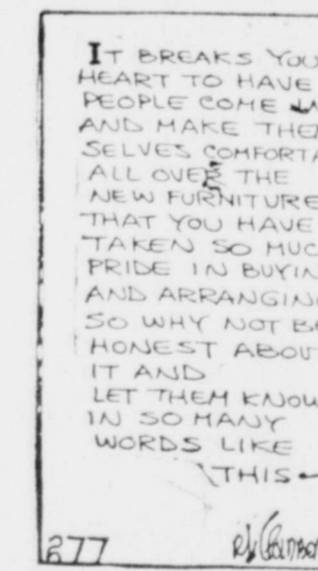 IT BREAKS YOU
HEART TO HAVE
PEOPLE COME IN
AND MAKE THE
SELVES COMFORTA
ALL OVER THE
NEW FURNITURE
THAT YOU HAVE
TAKEN SO MUC
PRIDE IN BUYIN
AND ARRANGIN
SO WHY NOT B
HONEST ABOU
IT AND
LET THEM KNOW
IN SO MANY
WORDS LIKE
THIS-
277